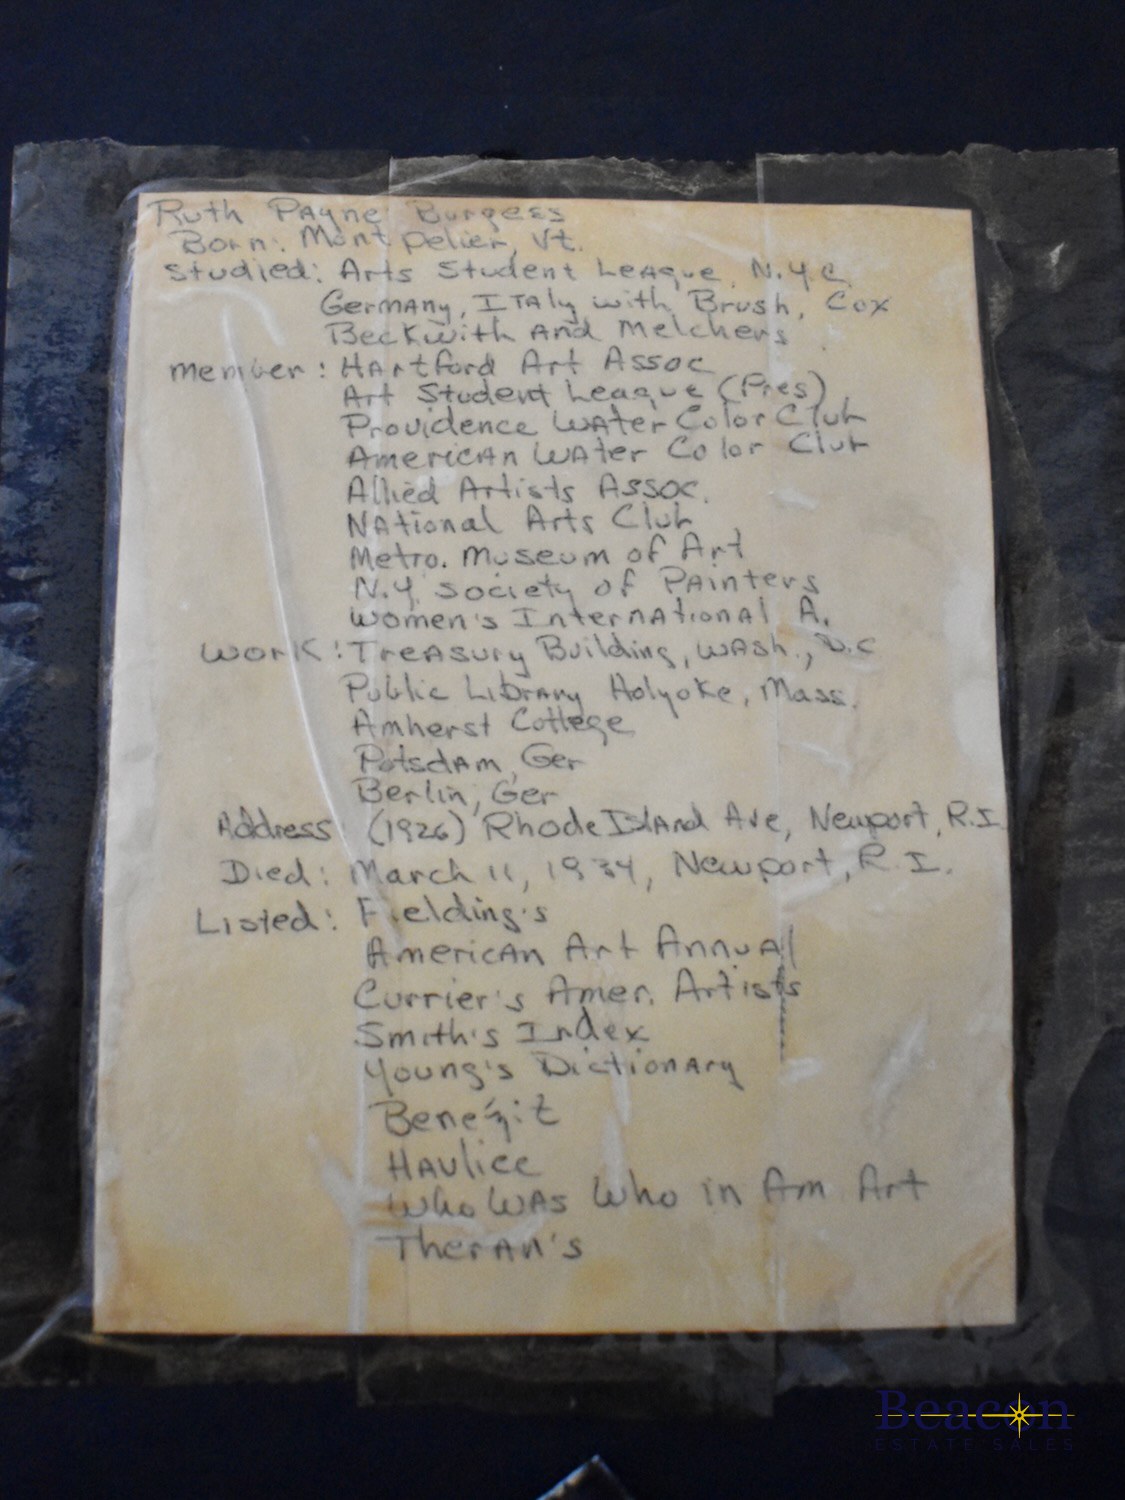 Ruth Payne Burgess
Born: Montpelier, Vt.
Studied: Arts Student League, N.Y.C.
Germany, Italy with Brush, Cox
Beckwith and Melchers
member: Hartford Art Assoc
Art Student League (Pres)
Providence Water Color Club
American Water Color Club
Allied Artists Assoc.
National Arts Club
Metro. Museum of Art
N.Y. Society of Painters
Women's International A.
Work: Treasury Building, Wash., D.C
Public Library Holyoke, Mass.
Amherst College
Potsdam, Ger
Berlin, Ger
Address (1926) Rhode Island Ave, Newport, R.I.
Died: March 11, 1934, Newport, R.I.
Listed: Fielding's
American Art Annual
Currier's Amer. Artists
Smith's Index
Young's Dictionary
Benézit
Havlice
Who Was Who in Am Art
Theran's
Beacon
ESTATE SALES